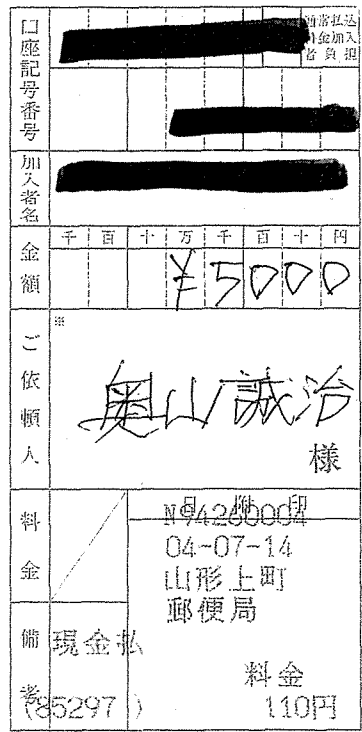 口座記号番号
通常払込
料金加入
者負担
加入者名
金額
千 百 十 万 千 百 十 円
¥5000
ご依頼人
※
奥山誠治
様
料金
日附印
N94260004
04-07-14
山形上町
郵便局
備考
現金払
料金
(85297)
110円